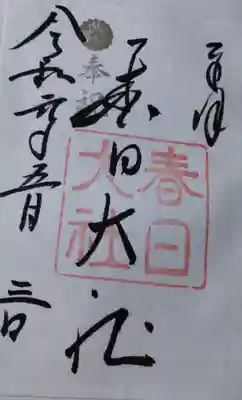 奉拝
奉祝
春日大社
春日大社
令和元年五月三日